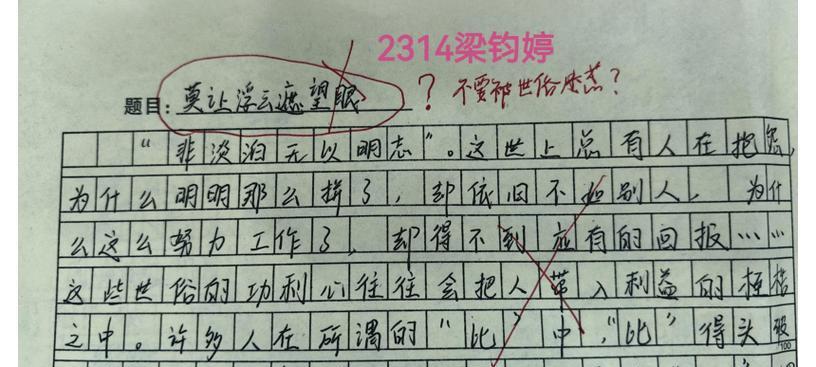 2314梁钧婷
题目：莫让浮云遮望眼 ？不要被世俗所惑？
“非淡泊无以明志”。这世上总有人在抱怨，
为什么明明那么拼了，却依旧不如别人，为什
么这么努力工作了，却得不到应有的回报……
这些世俗的功利心往往会把人带入利益的桎梏
之中。许多人在所谓的“比”中，“比”得头破
100